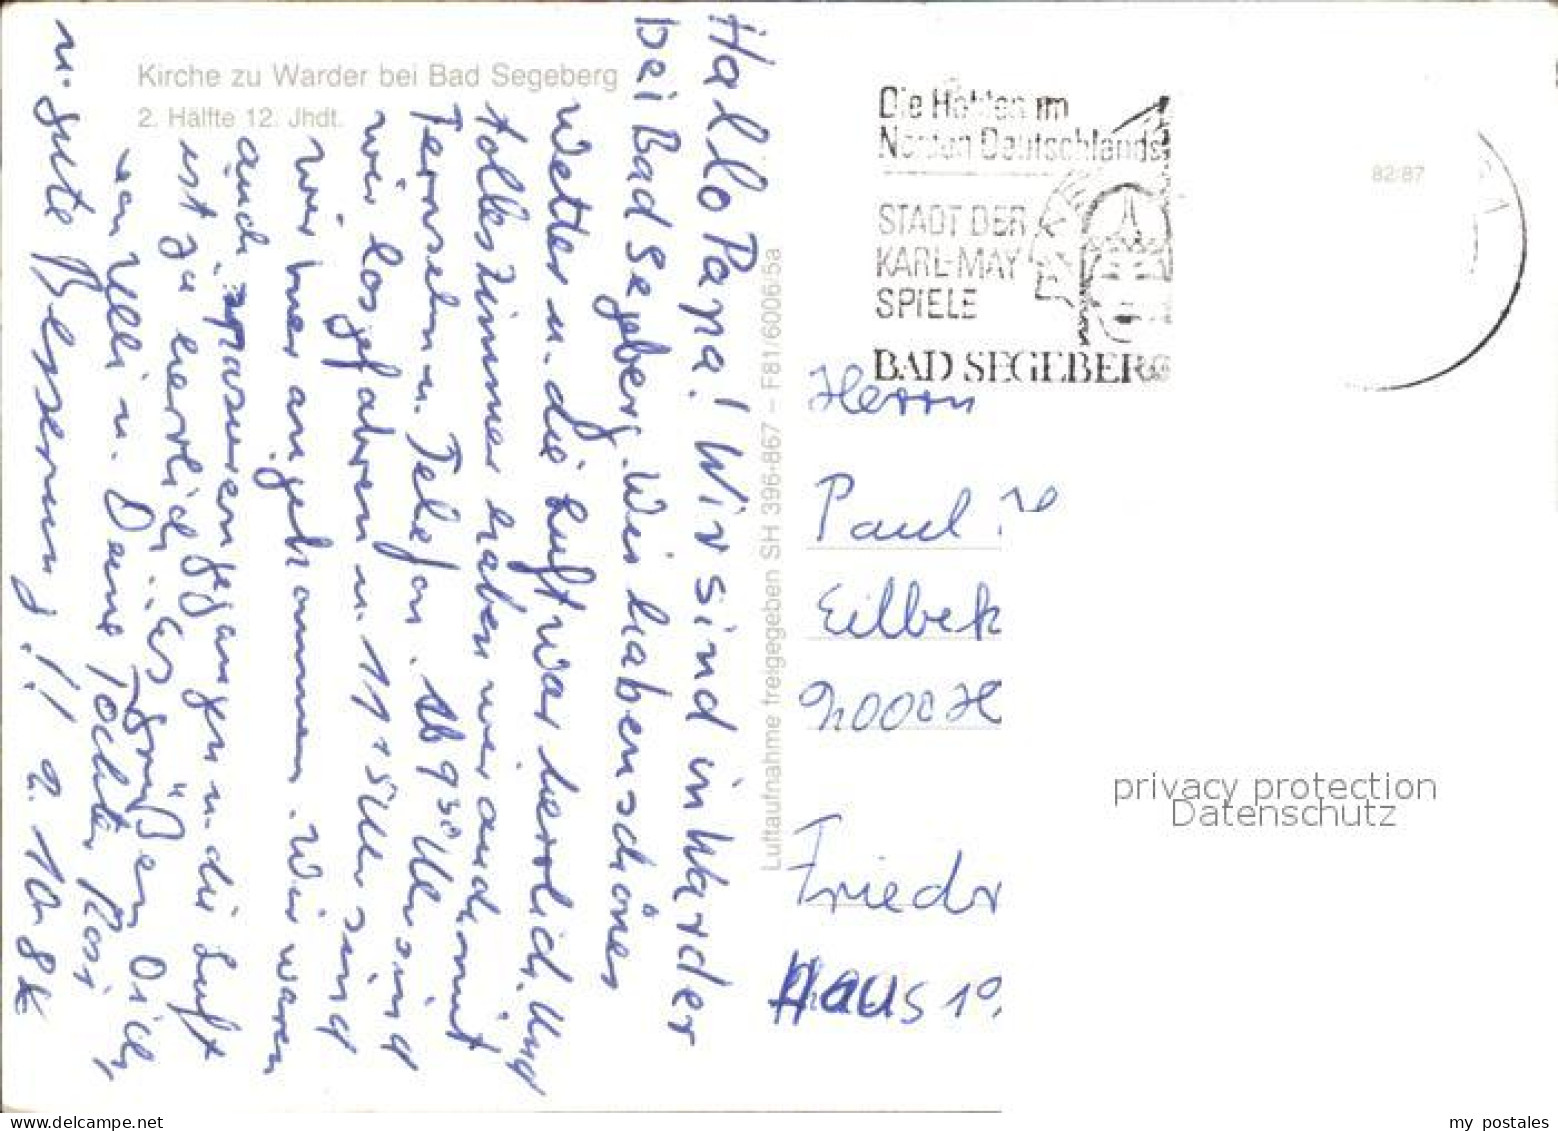 Kirche zu Warder bei Bad Segeberg
2. Hälfte 12. Jhdt.
Hallo Papa! Wir sind in Warder
bei Bad Segeberg. Wir haben schönes
Wetter u. die Luft war herrlich. Und
tolles Zimmer haben wir auch mit
Fernsehn u. Telefon. Ab 9³⁰ Uhr sind
wir losgefahren u. 11¹⁵ Uhr sind
wir hier angekommen. Wir waren
auch spazieren gegangen u. die Luft
ist ja herrlich. Es grüßen Dich
von Ulli u. Deine Tochter Rosi
u. gute Besserung!!
Luftaufnahme freigegeben SH 396-867 – F81/6006/5a
Die Höhlen im
Norden Deutschlands
STADT DER
KARL-MAY
SPIELE
BAD SEGEBERG
82/87
Herrn
Paul
Eilbek
2000 H
Friedr
Haus 19
privacy protection
Datenschutz
my postales